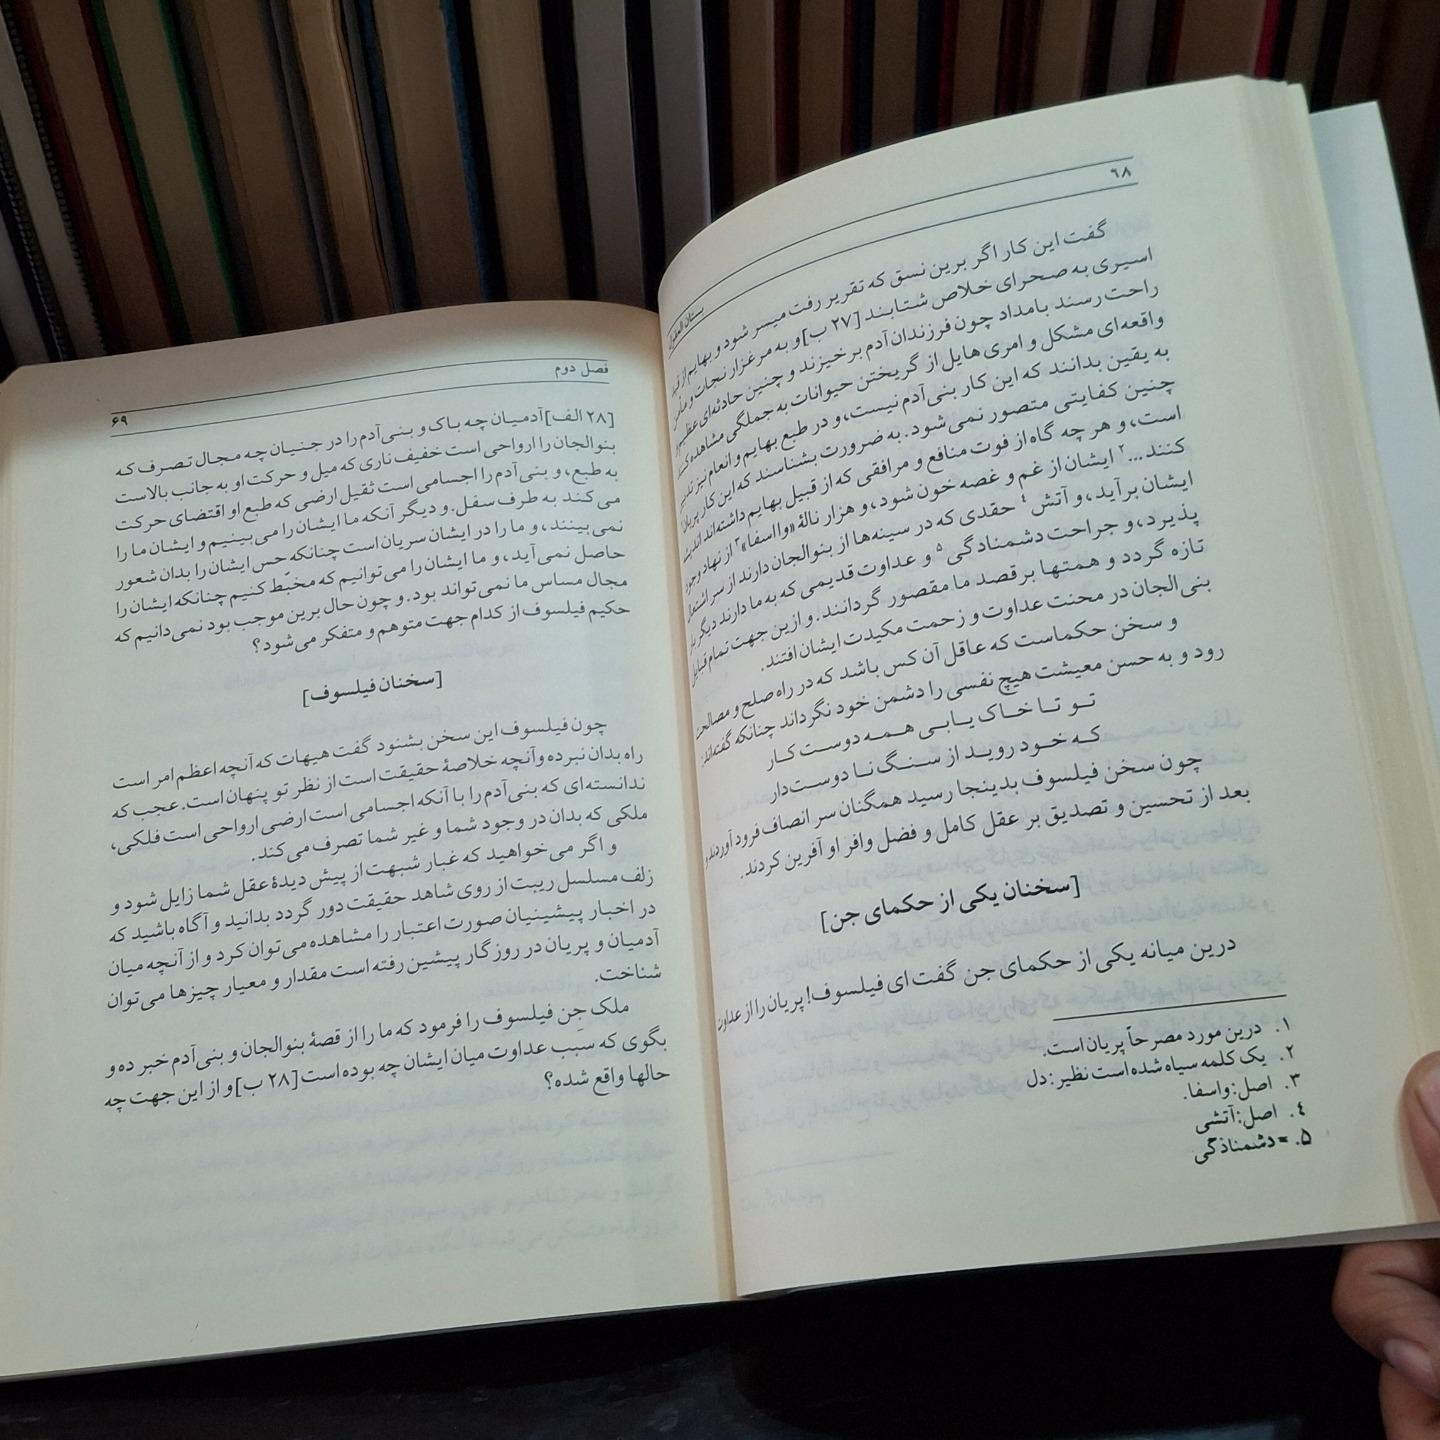 ٦٨
بستان العقول
گفت این کار اگر برین نسق که تقریر رفت میسر شود و بهایم از قید
اسیری به صحرای خلاص شتابند [٢٧ ب] و به مرغزار نجات و مأمن
راحت رسند بامداد چون فرزندان آدم برخیزند و چنین حادثه‌ای عظیم و
واقعه‌ای مشکل و امری هایل از گریختن حیوانات به جملگی مشاهده کنند
به یقین بدانند که این کار بنی‌آدم نیست، و در طبع بهایم و انعام نیز تقدیر
چنین کفایتی متصور نمی‌شود. به ضرورت بشناسند که این کار پریان١
است، و هر چه گاه از فوت منافع و مرافقی که از قبیل بهایم داشته‌اند اندیشه
کنند...٢ ایشان از غم و غصه خون شود، و هزار نالهٔ «وا اسفا»٣ از نهاد وجود
ایشان برآید، و آتش٤ حقدی که در سینه‌ها از بنوالجان دارند از سر اشتعال
پذیرد، و جراحت دشمنادگی٥ و عداوت قدیمی که به ما دارند دیگر بار
تازه گردد و همتها بر قصد ما مقصور گردانند. و ازین جهت تمام قبایل
بنی‌الجان در محنت عداوت و زحمت مکیدت ایشان افتند.
و سخن حکماست که عاقل آن کس باشد که در راه صلح و مصالحت
رود و به حسن معیشت هیچ نفسی را دشمن خود نگرداند چنانکه گفته‌اند:
تو تا خاک یابی همه دوست کار
که خود روید از سنگ نا دوست‌دار
چون سخن فیلسوف بدینجا رسید همگنان سر انصاف فرود آوردند و
بعد از تحسین و تصدیق بر عقل کامل و فضل وافر او آفرین کردند.
[سخنان یکی از حکمای جن]
درین میانه یکی از حکمای جن گفت ای فیلسوف! پریان را از عداوت
١. درین مورد مصرحاً پریان است.
٢. یک کلمه سیاه شده است نظیر: دل
٣. اصل: واسفا.
٤. اصل: آتشی
۵. = دشمناذگی
فصل دوم
۶٩
[٢٨ الف] آدمیان چه باک و بنی‌آدم را در جنیان چه مجال تصرف که
بنوالجان را ارواحی است خفیف ناری که میل و حرکت او به جانب بالاست
به طبع، و بنی‌آدم را اجسامی است ثقیل ارضی که طبع او اقتضای حرکت
می‌کند به طرف سفل. و دیگر آنکه ما ایشان را می‌بینیم و ایشان ما را
نمی‌بینند، و ما را در ایشان سریان است چنانکه حس ایشان را بدان شعور
حاصل نمی‌آید، و ما ایشان را می‌توانیم که مخبّط کنیم چنانکه ایشان را
مجال مساس ما نمی‌تواند بود. و چون حال برین موجب بود نمی‌دانیم که
حکیم فیلسوف از کدام جهت متوهم و متفکر می‌شود؟
[سخنان فیلسوف]
چون فیلسوف این سخن بشنود گفت هیهات که آنچه اعظم امر است
راه بدان نبرده وآنچه خلاصهٔ حقیقت است از نظر تو پنهان است. عجب که
ندانسته‌ای که بنی‌آدم را با آنکه اجسامی است ارضی ارواحی است فلکی،
ملکی که بدان در وجود شما و غیر شما تصرف می‌کند.
و اگر می‌خواهید که غبار شبهت از پیش دیدهٔ عقل شما زایل شود و
زلف مسلسل ریبت از روی شاهد حقیقت دور گردد بدانید و آگاه باشید که
در اخبار پیشینیان صورت اعتبار را مشاهده می‌توان کرد و از آنچه میان
آدمیان و پریان در روزگار پیشین رفته است مقدار و معیار چیزها می‌توان
شناخت.
ملک جِن فیلسوف را فرمود که ما را از قصهٔ بنوالجان و بنی‌آدم خبر ده و
بگوی که سبب عداوت میان ایشان چه بوده است [٢٨ ب] و از این جهت چه
حالها واقع شده؟